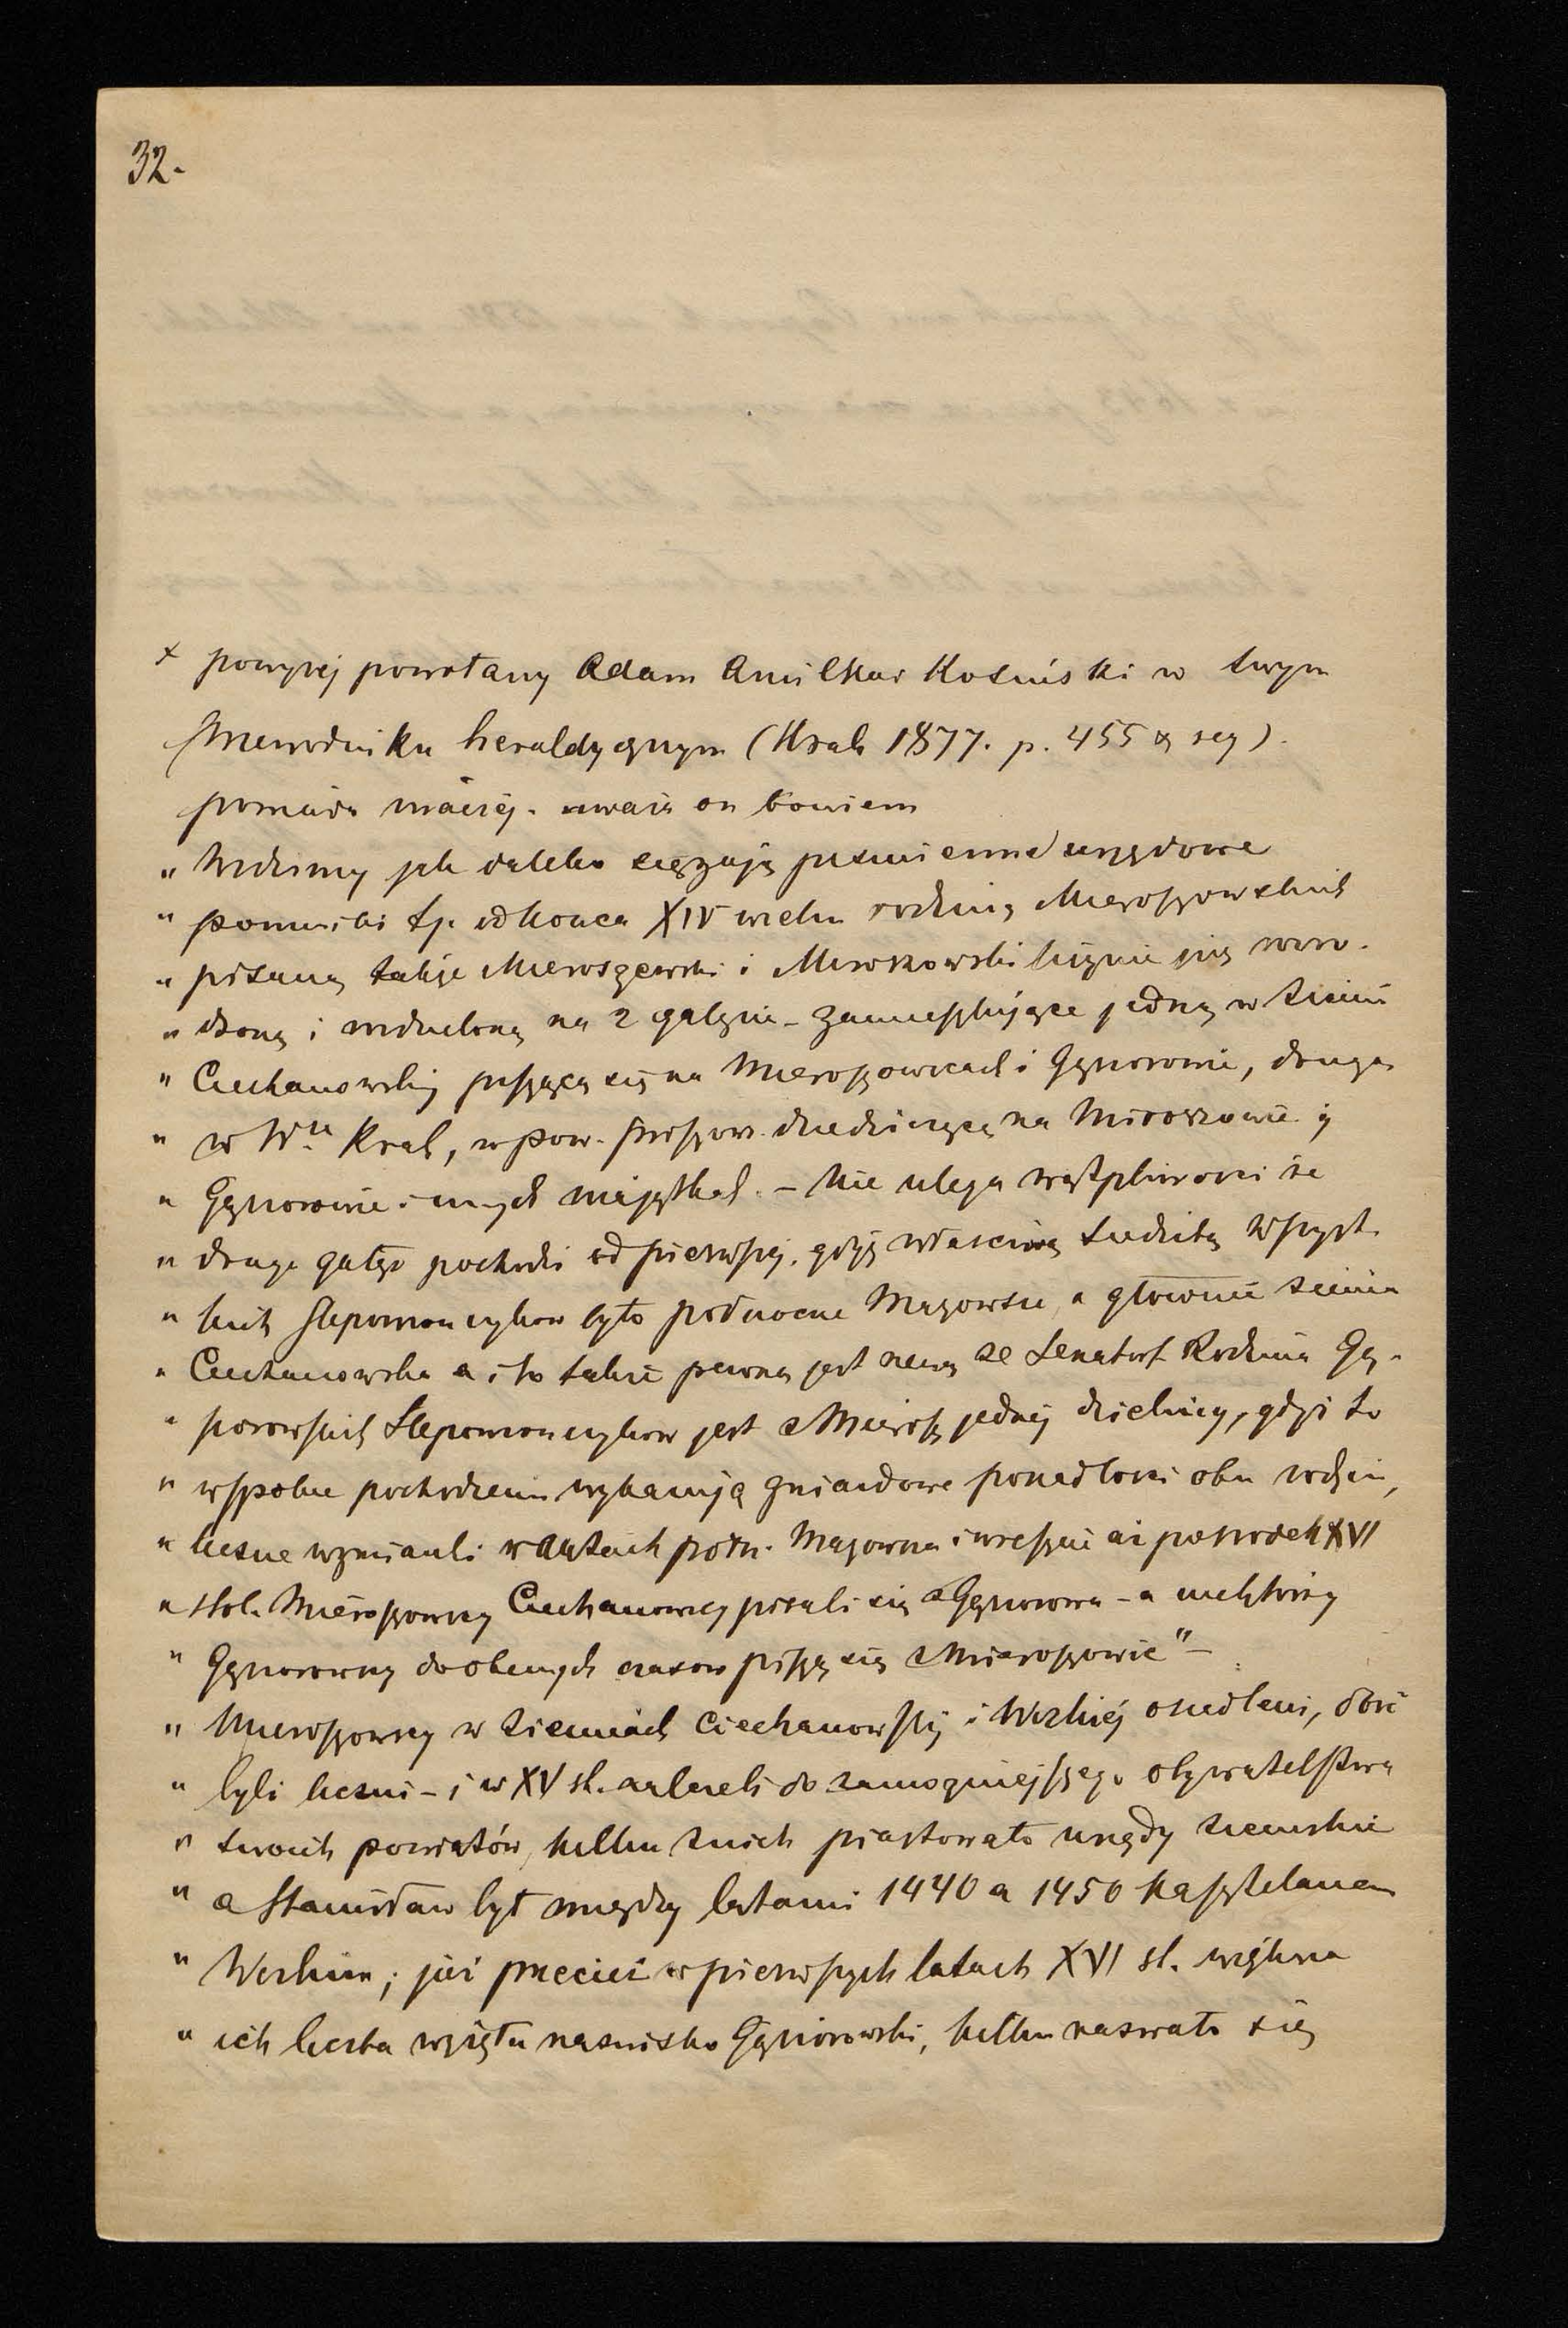 32.
x powyżej powołany Adam Amilkar Kosiński w swym
Przewodniku heraldycznym (Krak 1877. p. 455 & seq).
powiada inaczej. uważa on bowiem
" Widzimy jak daleko sięgają piśmienne urzędowe
" pomniki tj. od końca XIV wieku rodziną Mieroszowskich
" pisaną także Mieroszewski i Miroszowski licznie już rozro-
" dzoną i rozdzieloną na 2 gałęzie - zamieszkujące jedną w Ziemi
" Ciechanowskiej piszącą się na Mieroszowicach i Gąsiorowie, drugą
" w Wu Krak, w pow. Proszow. dziedziczącą na Miroszowie i
" Gąsiorowie i innych majątkach. - Nie ulega wątpliwości że
" druga gałęź pochodzi od pierwszej, gdyż właściwą siedzibą wszyst-
" kich Ślepowrończyków było północne Mazowsze, a głównie ziemia
" Ciechanowska a i to także pewną jest rzeczą że Senators. Rodzina Gą-
" siorowskich Ślepowrończyków jest z Mierosz jednej dzielnicy, gdyż to
" wspólne pochodzenie wykazują gniazdowe posiadłości obu rodzin,
" liczne wzmianki w aktach półn. Mazowsza i wreszcie aż po środek XVI
" stol. Mieroszowscy Ciechanowscy pisali się z Gąsiorowa - a niektórzy
" Gąsiorowscy do obecnych czasów piszą się z Mieroszowic" -
" Mieroszowscy w ziemiach Ciechanowskiej i Wizkiej osiedleni, dość
" byli liczni - i w XV st. należeli do zamożniejszego obywatelstwa
" swoich powiatów, kilku z nich piastowało urzędy ziemskie
" a Stanisław był między latami 1440 a 1450 kasztelanem
" Wizkim; już przecież w pierwszych latach XVI st. większa
" ich liczba wzięła nazwisko Gąsiorowski, kilku nazwało się